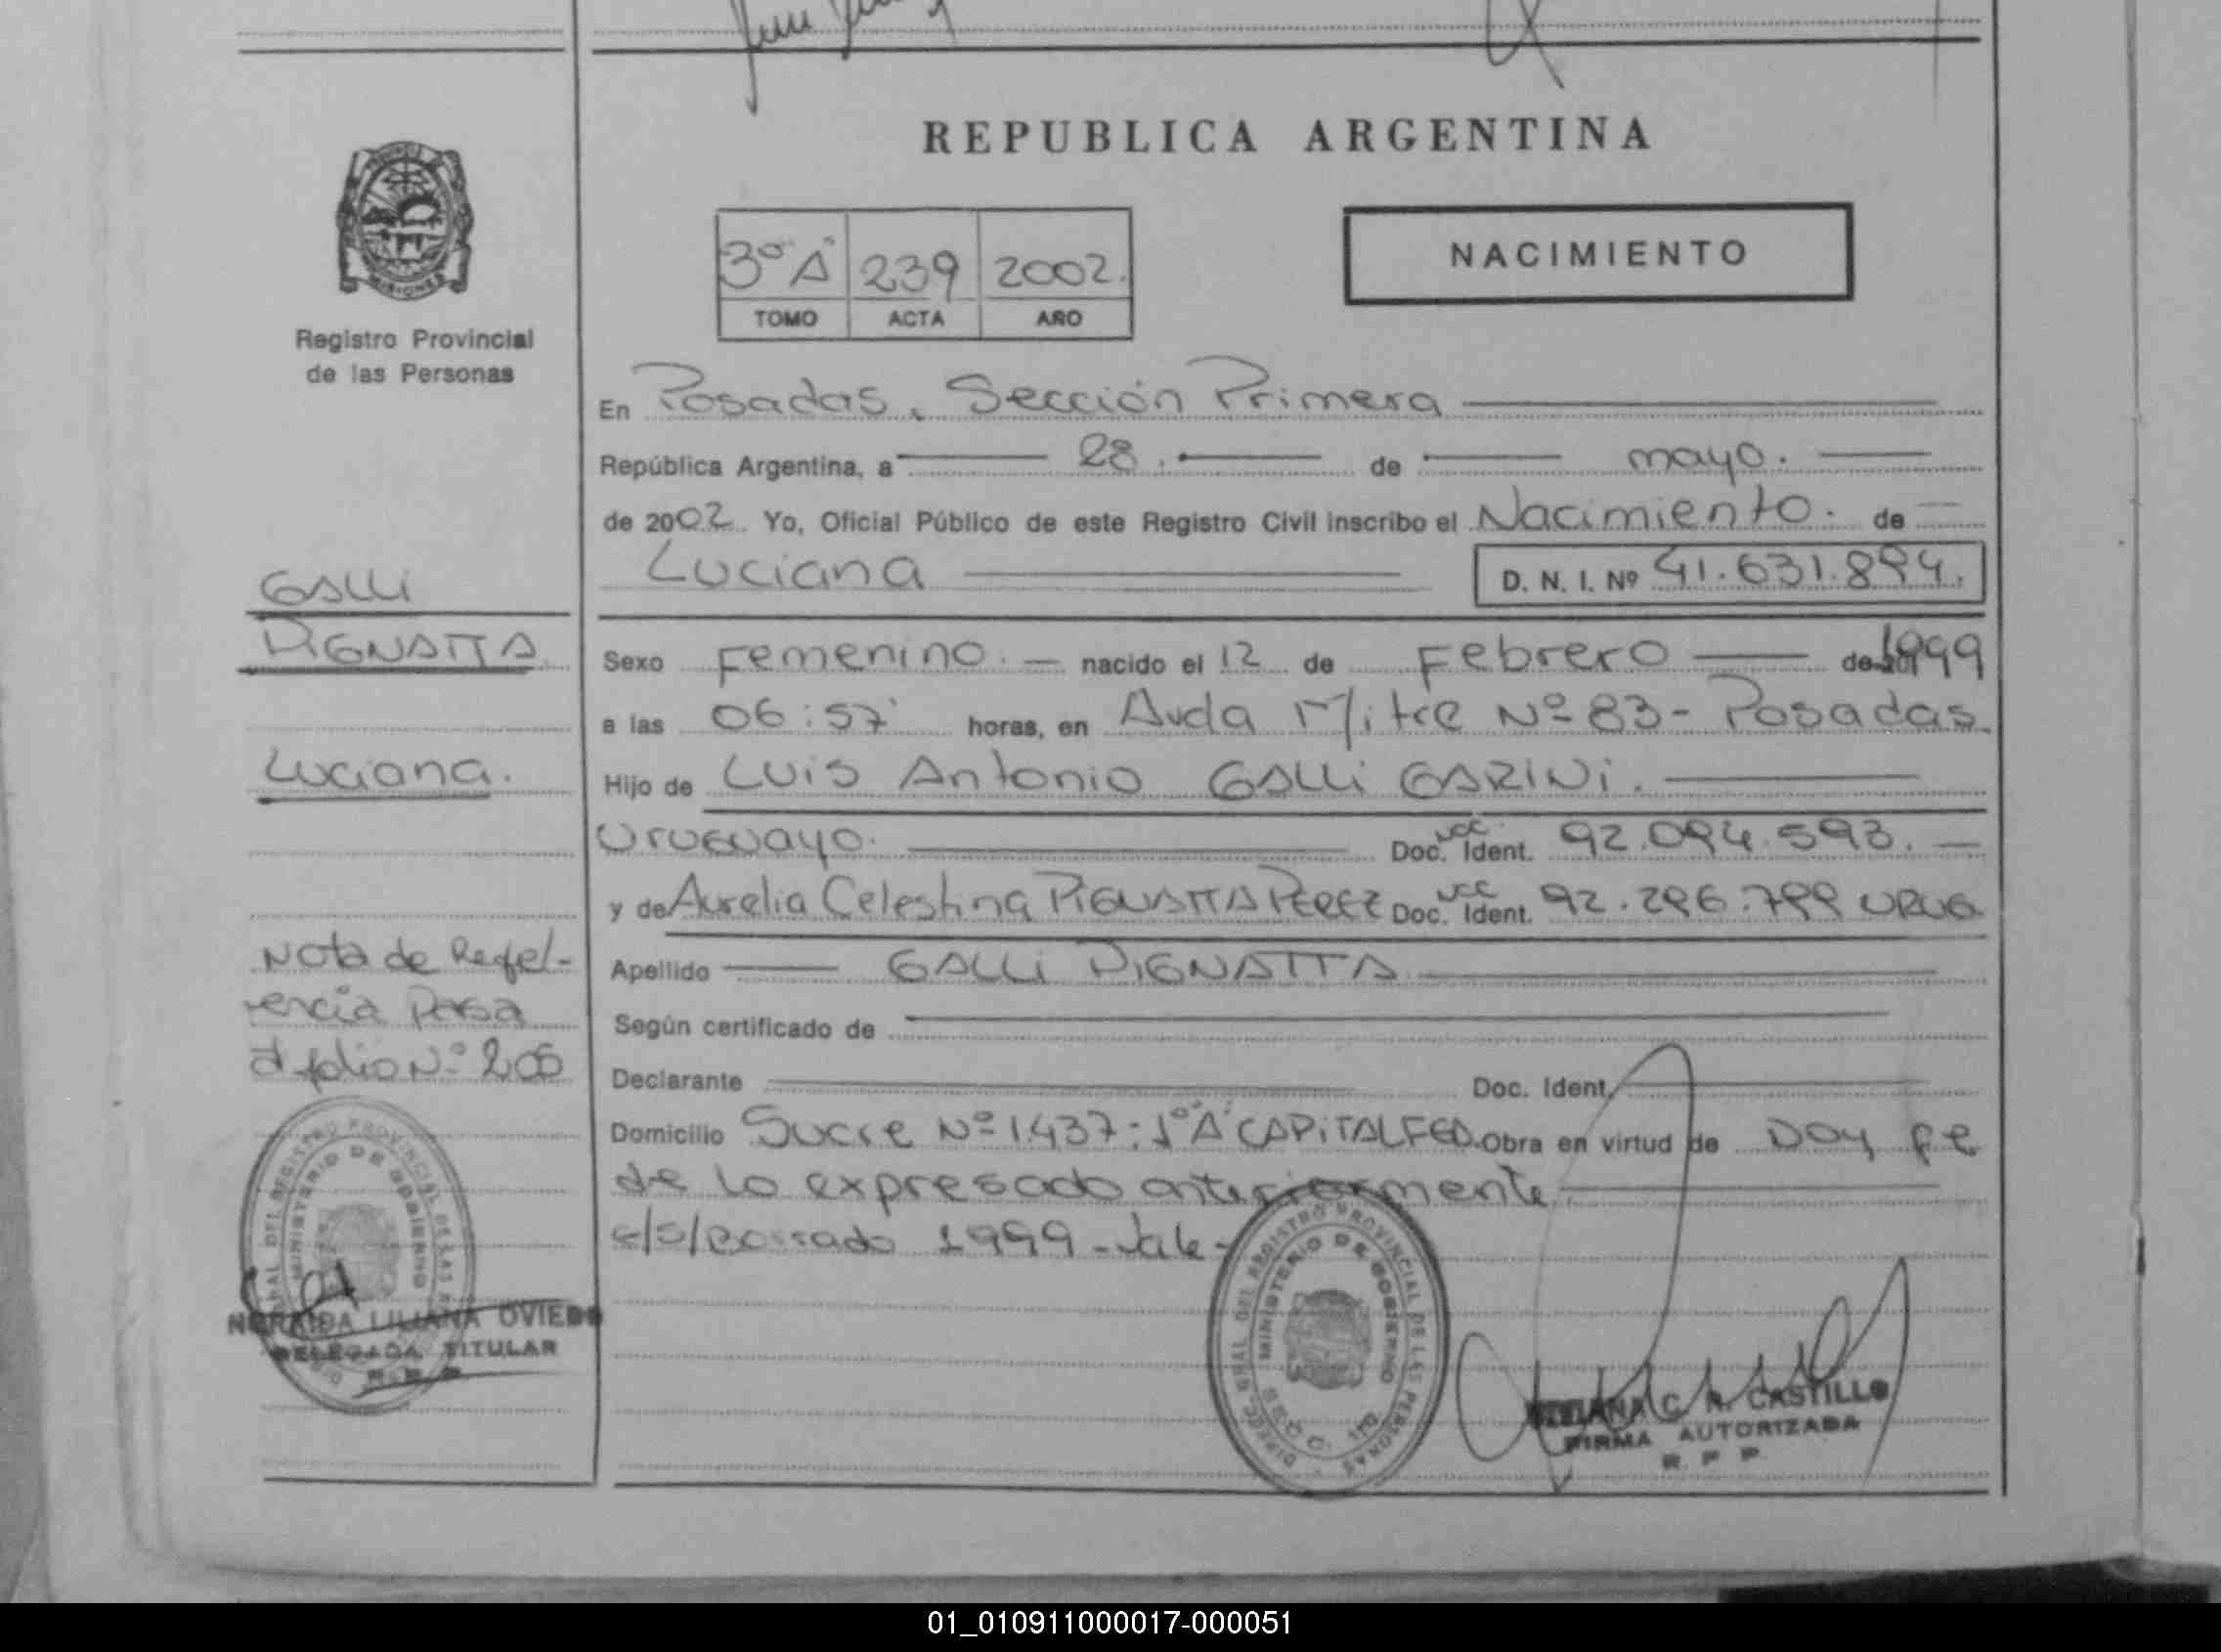 REPUBLICA ARGENTINA
3º "A" 239 2002.
TOMO ACTA AÑO
NACIMIENTO
MISIONES
Registro Provincial
de las Personas
En Posadas, Sección Primera
República Argentina, a 28. de mayo.
de 2002 Yo, Oficial Público de este Registro Civil inscribo el Nacimiento. de
Luciana D. N. I. Nº 41.631.894.
GALLi
PIGNATTA
Luciana.
Sexo Femenino. nacido el 12 de Febrero de 1999
a las 06:57' horas, en Avda Mitre Nº 83 - Posadas
Hijo de Luis Antonio GALLi GARINi.
Uruguayo. Doc. Ident. 92.094.593.
y de Aurelia Celestina PIGNATTA PEREZ Doc. Ident. 92.296.799 URUG
Apellido GALLi PIGNATTA
Según certificado de
Declarante Doc. Ident.
Domicilio Sucre Nº 1437: 1º "A" CAPiTAL FED. Obra en virtud de Doy fe
de lo expresado anteriormente
s/s/borrado 1999 - Vale -
Nota de Refe-
rencia Pasa
al folio Nº 205
DIRECC. GRAL. DEL REGISTRO PROVINCIAL DE LAS PERSONAS
MINISTERIO DE GOBIERNO
NORAIDA LILIANA OVIEDO
DELEGADA TITULAR
R. P. P.
DIRECC. GRAL. DEL REGISTRO PROVINCIAL DE LAS PERSONAS
MINISTERIO DE GOBIERNO
C. R. CASTILLO
FIRMA AUTORIZADA
R P P
01_010911000017-000051